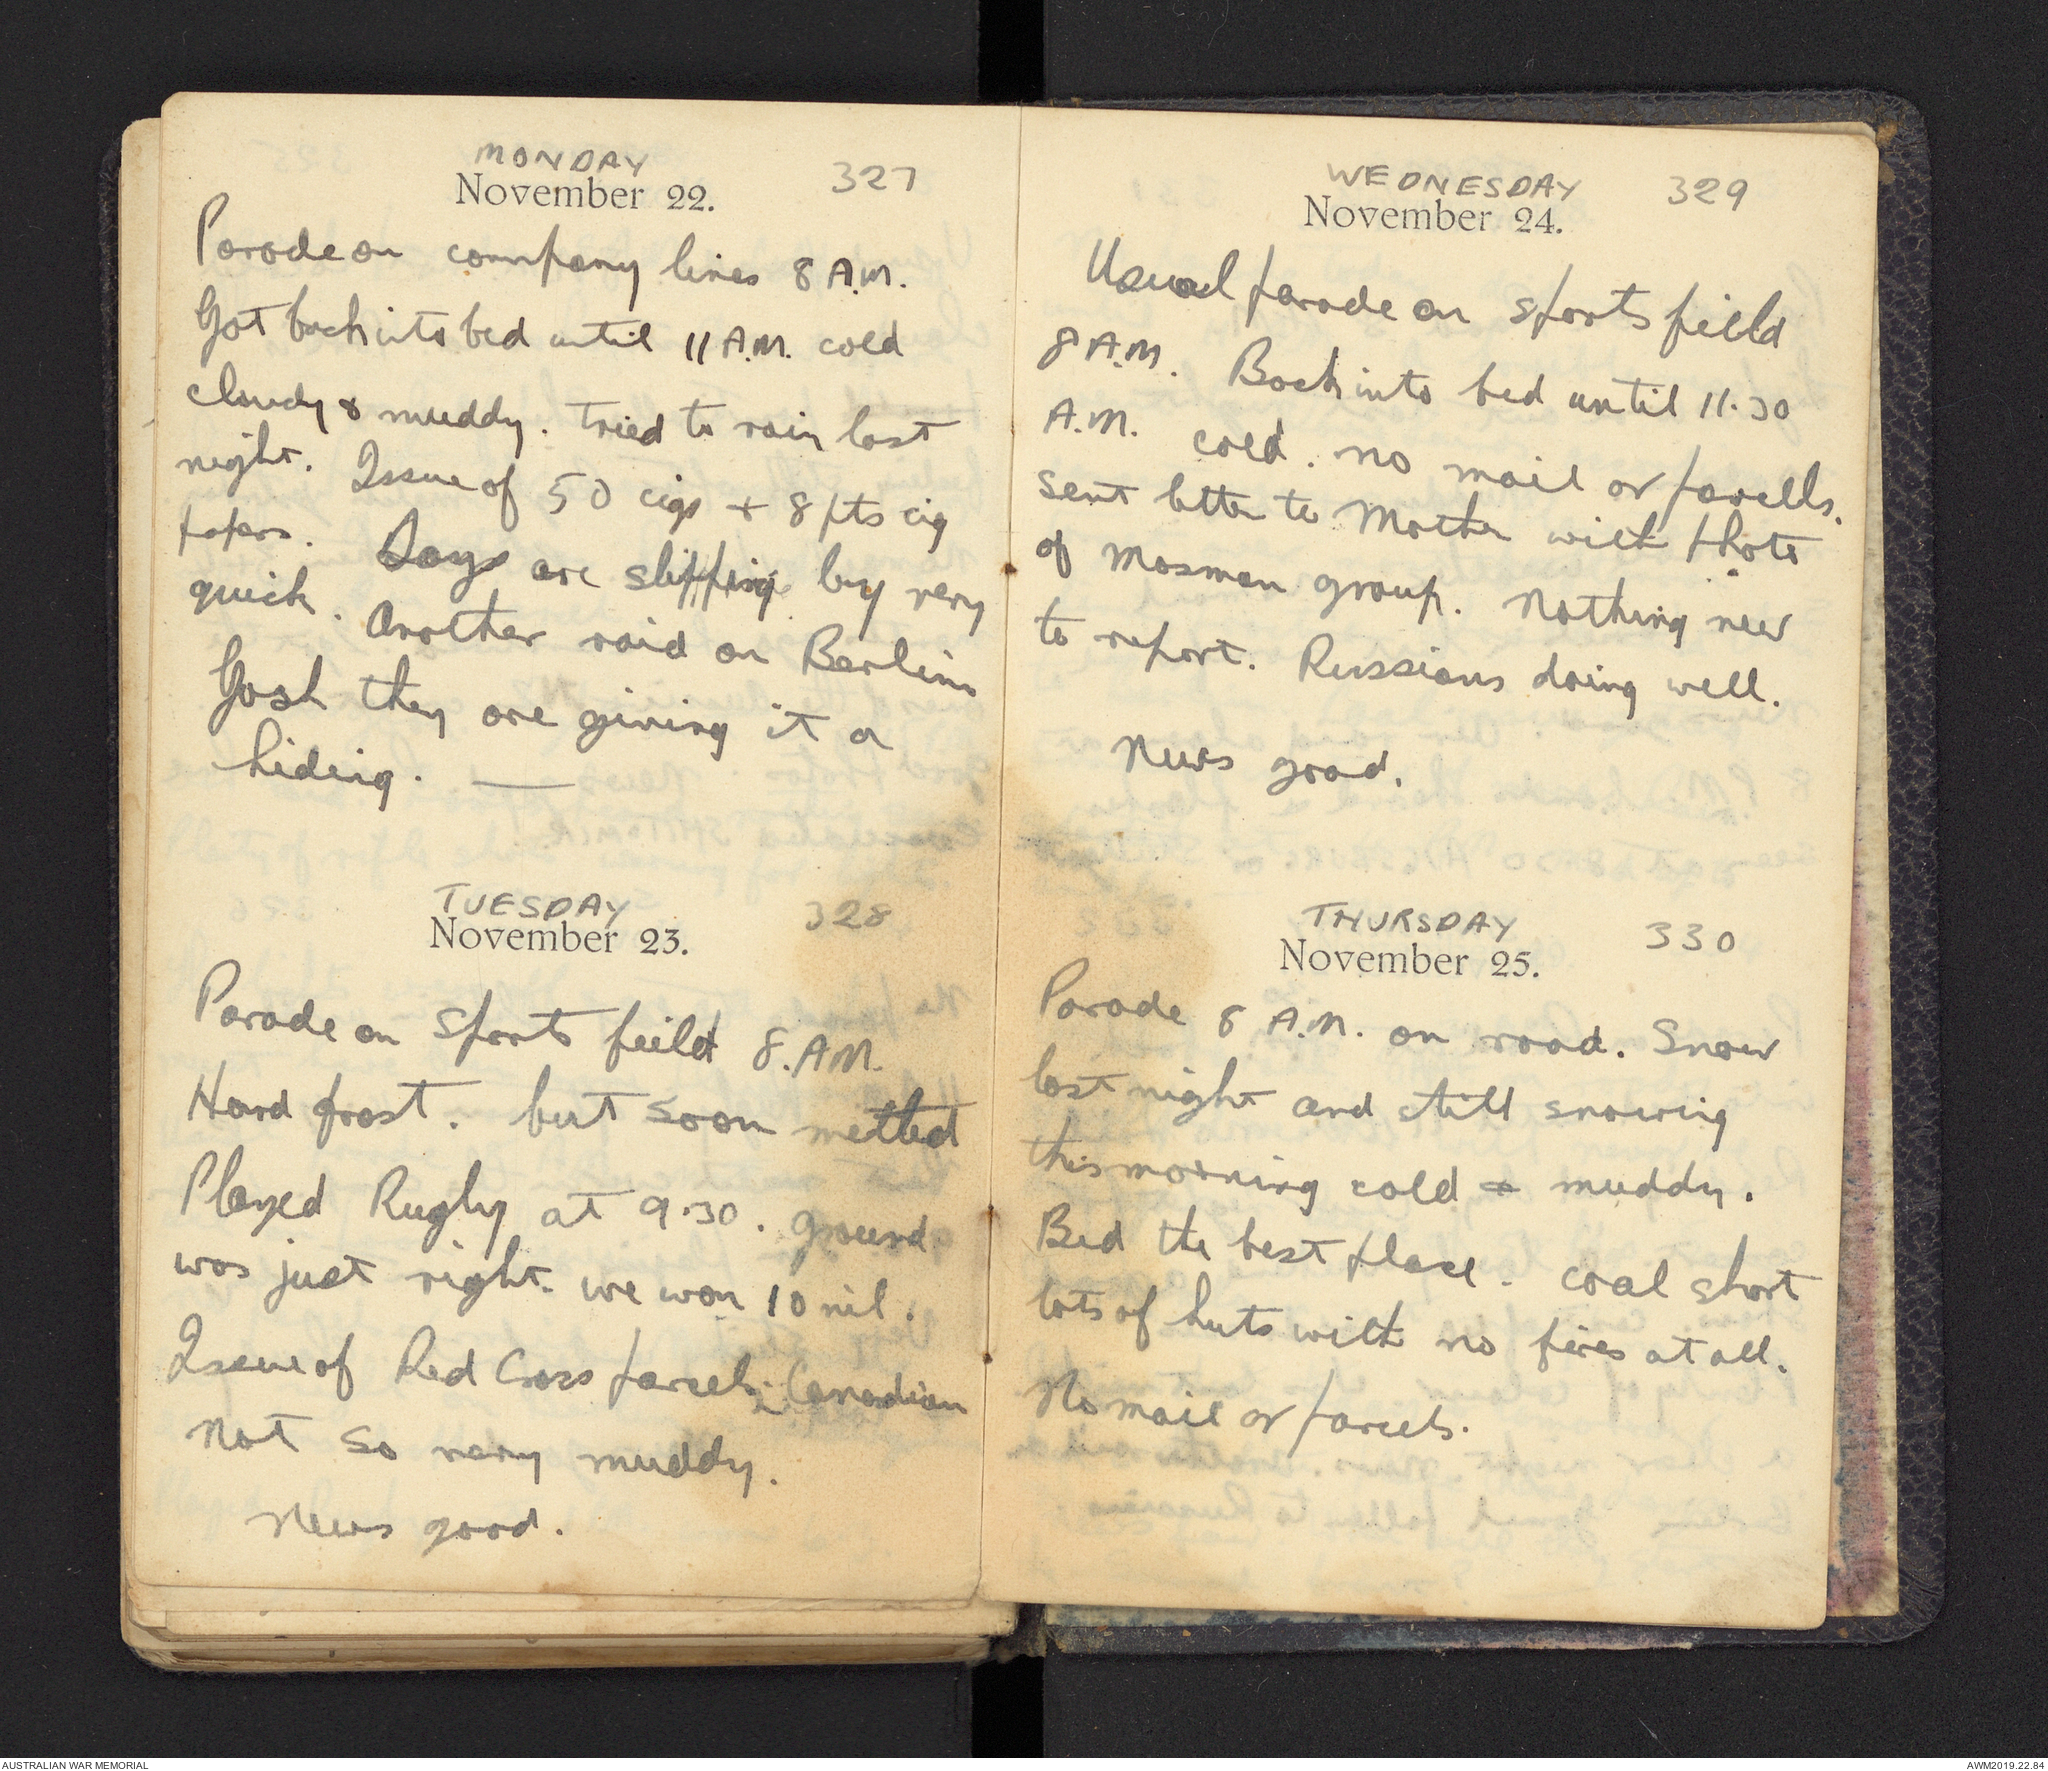 MONDAY 327
November 22.
Parade on company lines 8 A.M.
Got back into bed until 11 A.M. cold
cloudy & muddy. Tried to rain last
night. Issue of 50 cigs + 8 pts cig
papers. Days are slipping by very
quick. Another raid on Berlin
Gosh they are giving it a
hiding. —
TUESDAY 328
November 23.
Parade on sports feild 8.AM.
Hard frost. but soon melted
Played Rugby at 9.30. ground
was just right. we won 10 nil.
Issue of Red Cross parcels; Canadian
Not so very muddy.
News good.
WEDNESDAY 329
November 24.
Usual parade on sports field
8 A.M. Back into bed until 11.30
A.M. cold. no mail or parcells.
sent letter to Mother with photo
of Mosman group. Nothing new
to report. Russians doing well.
News good.
THURSDAY 330
November 25.
Parade 8 A.M. on road. Snow
last night and still snowing
this morning cold & muddy.
Bed the best place. coal short
lots of huts with no fires at all.
No mail or parcels.
AUSTRALIAN WAR MEMORIAL
AWM2019.22.84